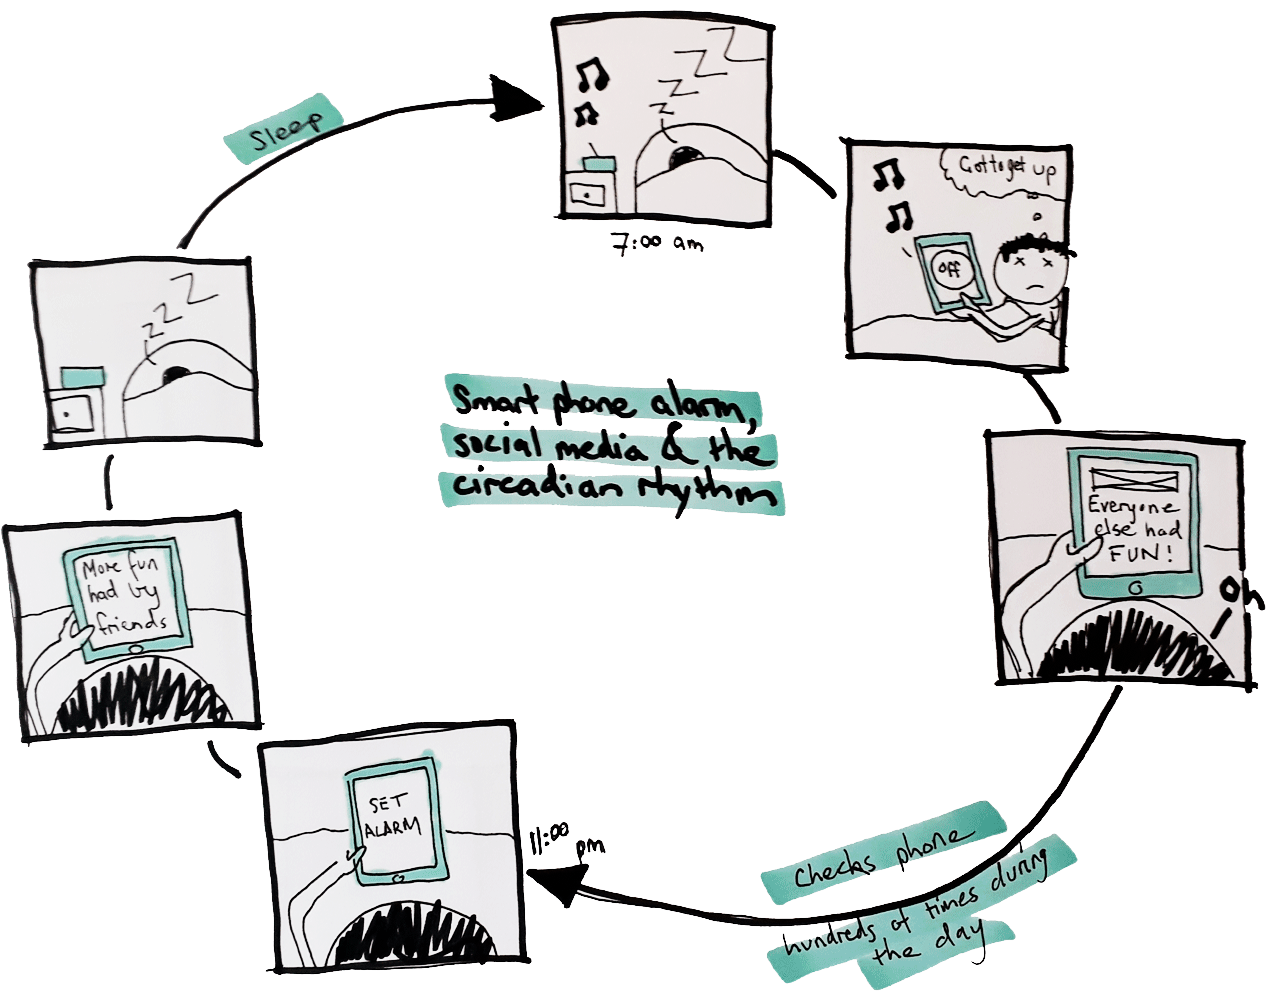 Smart phone alarm,
social media & the
circadian rhythm
Sleep
z z z Z
7:00 am
Got to get up
Off
Everyone
else had
FUN!
Oh
Checks phone
hundreds of times during
the day
11:00
pm
SET
ALARM
More fun
had by
friends
z z z Z